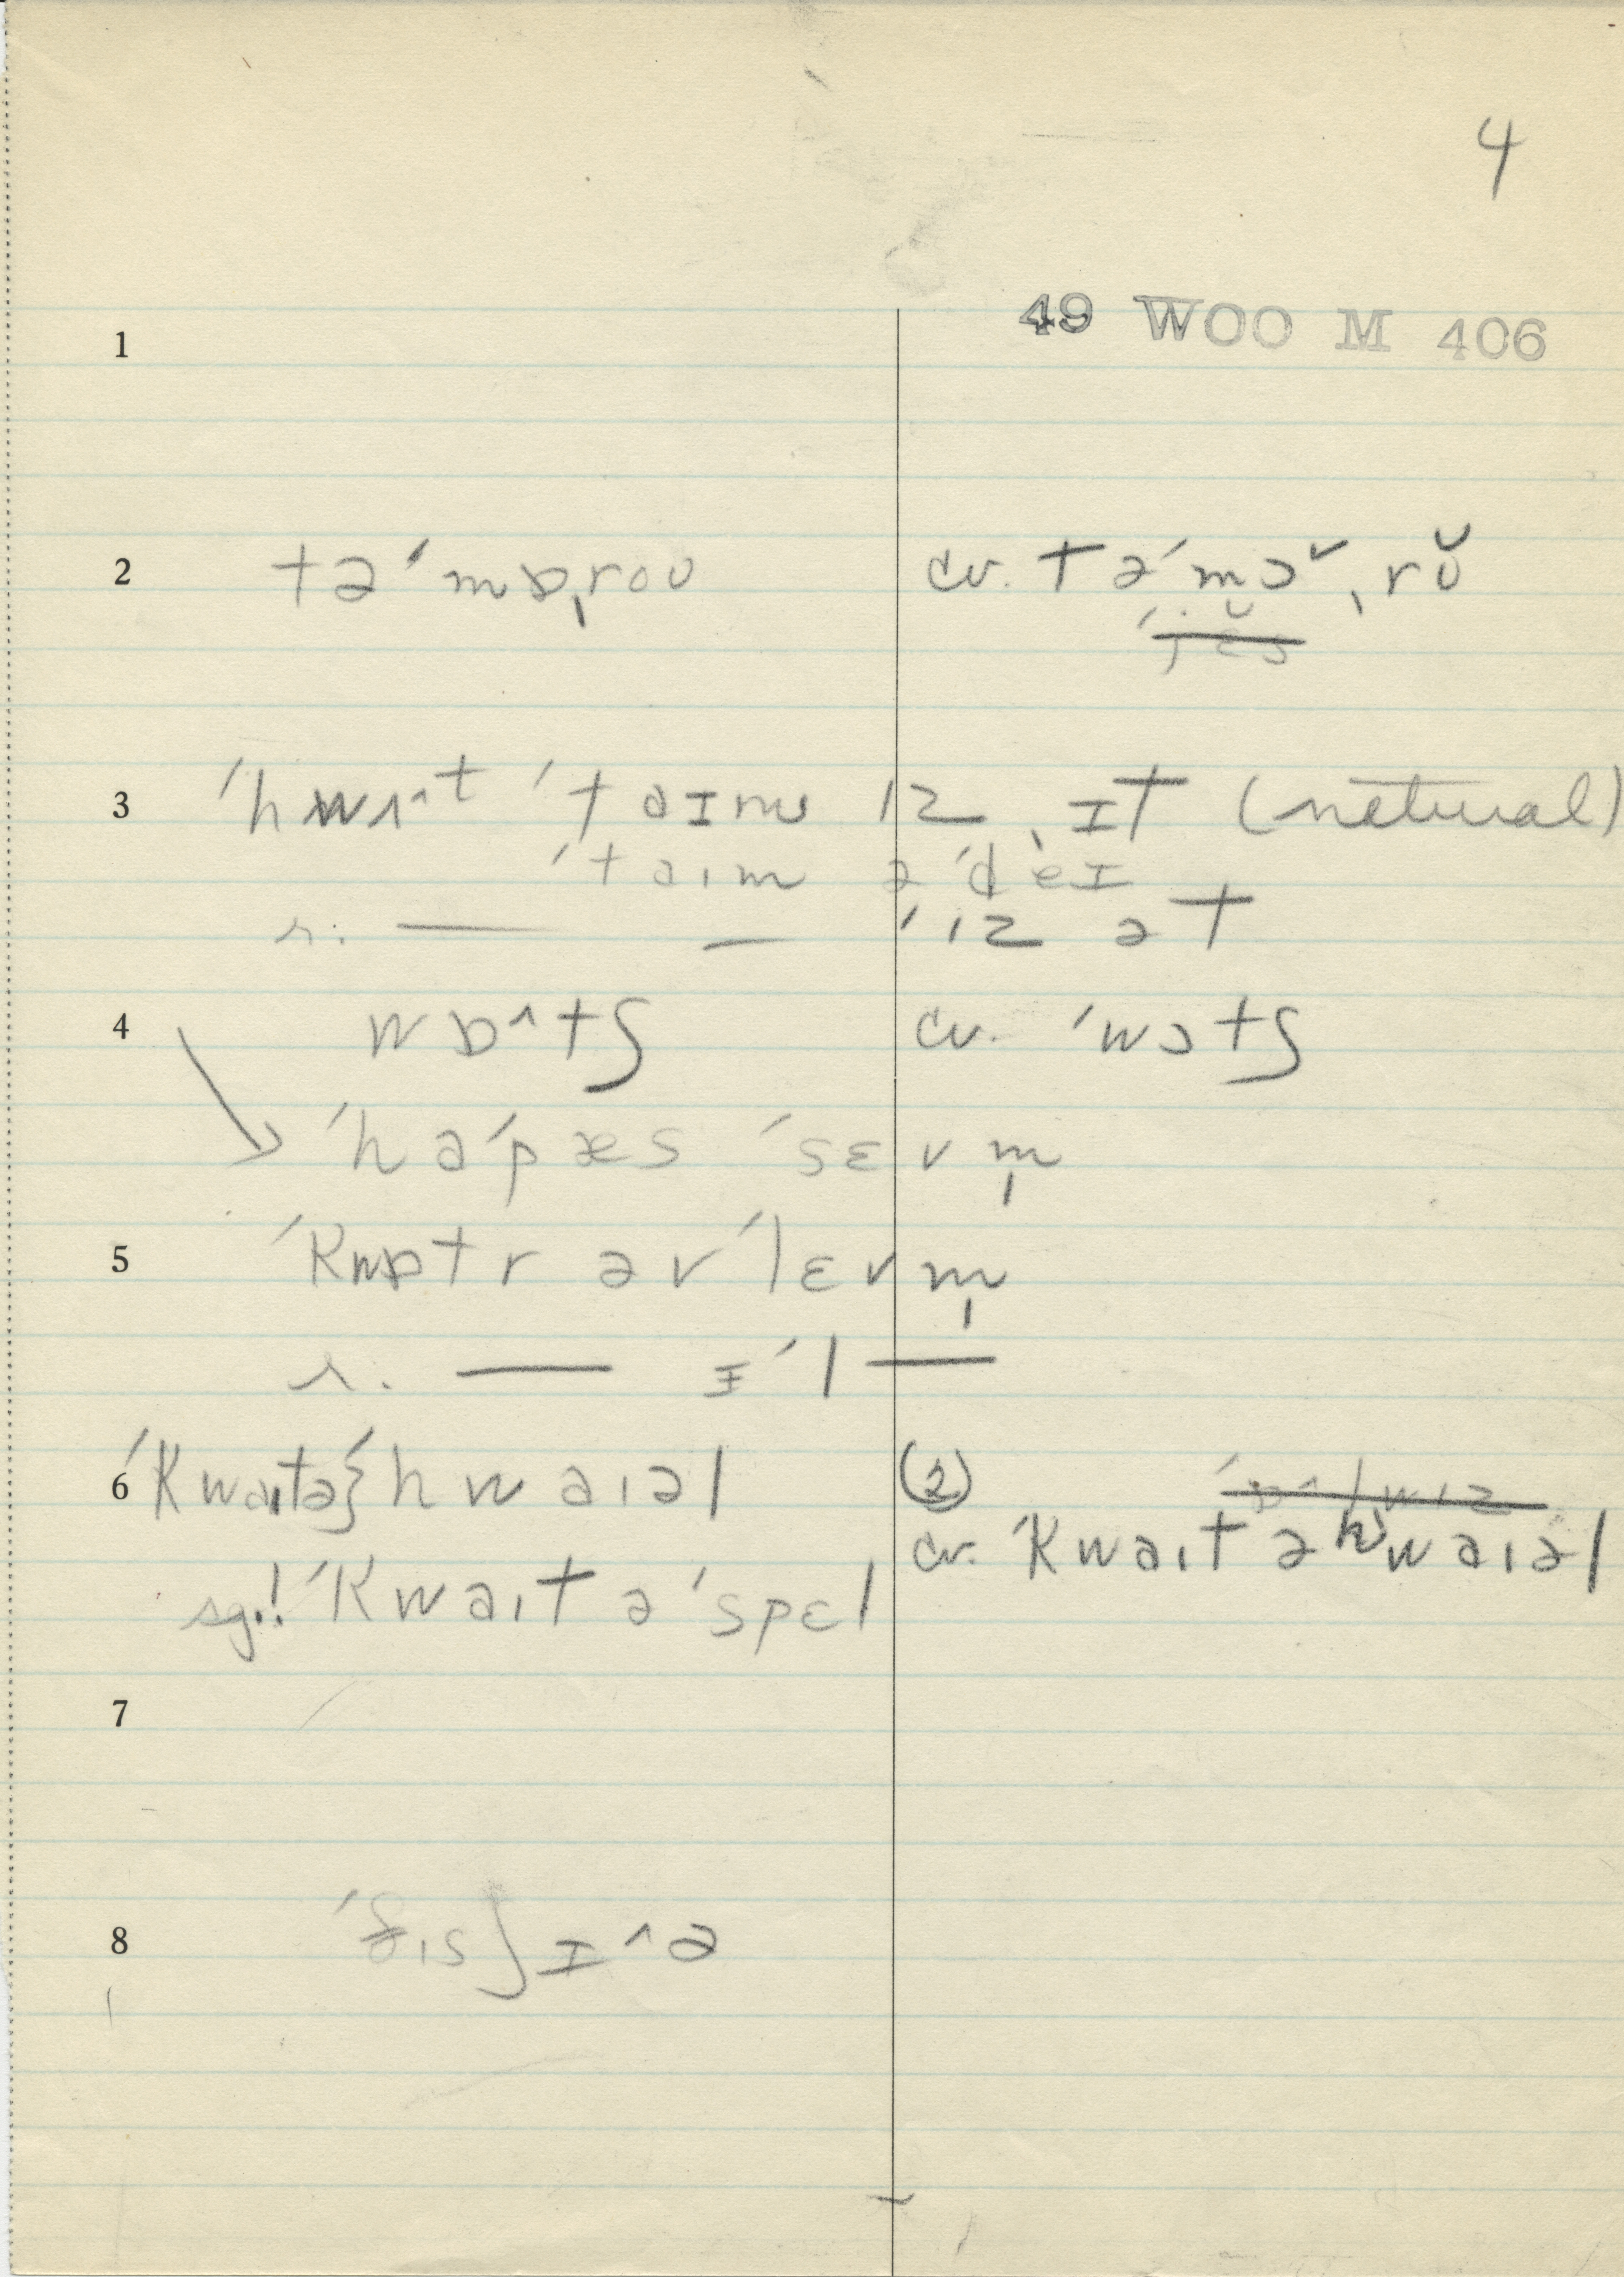 4
49 WOO M 406
1
2 tə'mɒˌroʊ cv. tə'mɔ˅ˌrŏ
'jĕs
3 'hwɒ^t 'taɪm ɪz ˌɪt (natural)
'taɪm ə'deɪ
r. — — 'ɪz ət
4 wɒ^tʃ cv. 'wɔtʃ
'hə'pæs 'sɛvm̩
5 'kwɒtr əv'lɛvm̩
r. — ɪ'l—
6 'kwaɪtə}'hwaɪəl (2)
cv. 'kwaɪt əhwaɪəl
sg.! 'kwaɪt ə'spɛl
7
8 'ðɪsʃɪ^ə